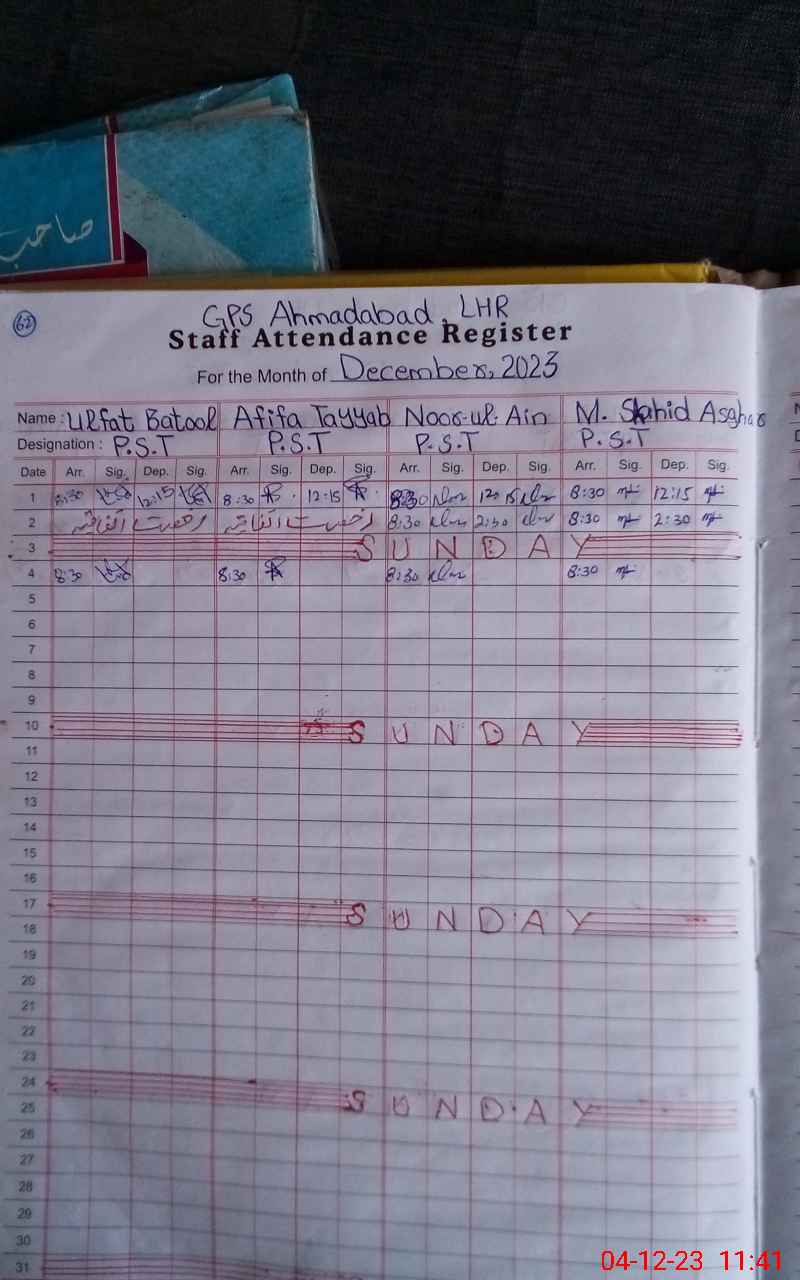 صاحب
62
GPS Ahmadabad, LHR
Staff Attendance Register
For the Month of December, 2023
Name : Ulfat Batool Afifa Tayyab Noor-ul-Ain M. Shahid Asghar
Designation : P.S.T P.S.T P.S.T P.S.T
Date Arr. Sig. Dep. Sig. Arr. Sig. Dep. Sig. Arr. Sig. Dep. Sig. Arr. Sig. Dep. Sig.
1 8:30 12:15 8:30 12:15 8:30 12:15 8:30 12:15
2 رخصت اتفاقیہ رخصت اتفاقیہ 8:30 2:30 8:30 2:30
3 SUNDAY
4 8:30 8:30 8:30 8:30
5
6
7
8
9
10 SUNDAY
11
12
13
14
15
16
17 SUNDAY
18
19
20
21
22
23
24 SUNDAY
25
26
27
28
29
30
31
04-12-23 11:41